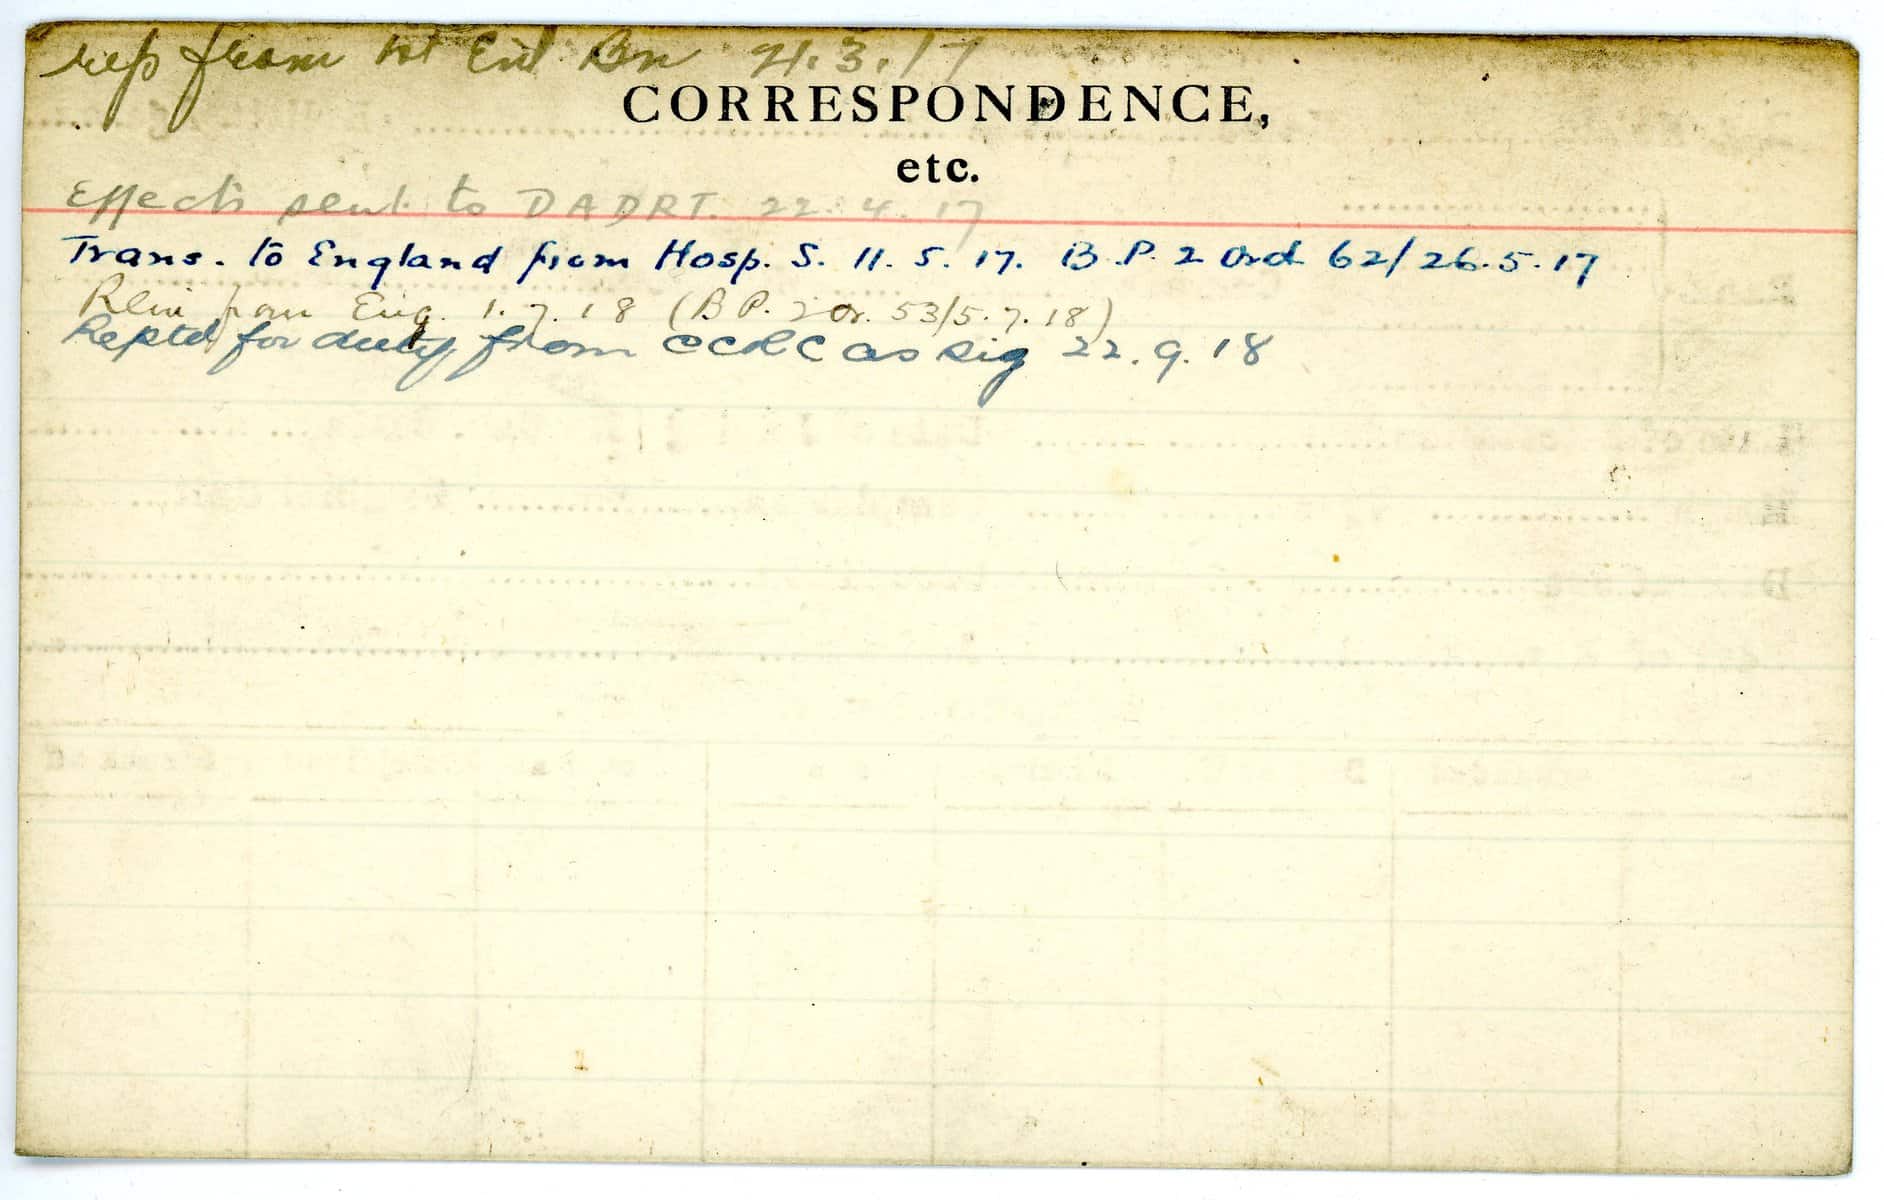 rep from 1st Ent Bn 21.3.17
CORRESPONDENCE,
etc.
Effects sent to DADRT. 22.4.17
Trans. to England from Hosp. S. 11.5.17. B.P. 2 Ord 62/26.5.17
from Eng. 1.7.18 (B P. 2 Or. 53/5.7.18)
Reptd for duty from CCRC as Sig 22.9.18